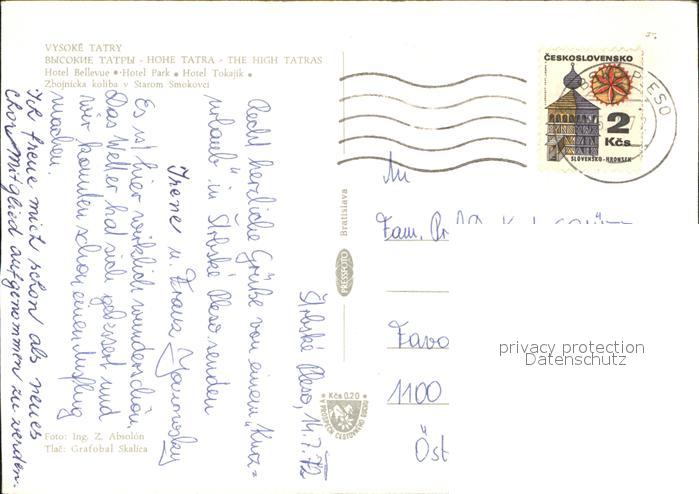 VYSOKÉ TATRY
ВЫСОКИЕ ТАТРЫ - HOHE TATRA - THE HIGH TATRAS
Hotel Bellevue • Hotel Park • Hotel Tokajík •
Zbojnícka koliba v Starom Smokovci
Štrbské Pleso, 14.7.72
Recht herzliche Grüße von einem „Kurz=
urlaub" in Štrbské Pleso senden
Irene u. Franz
Es ist hier wirklich wunderschön,
Das Wetter hat sich gebessert und
wir konnten schon einen Ausflug
machen.
Ich freue mich schon als neues
Chormitglied aufgenommen zu werden.
Foto: Ing. Z. Absolón
Tlač: Grafobal Skalica
Bratislava
PRESSFOTO
• Kčs 0.20 •
V PROSPECH CESTOVNÉHO RUCHU
ČESKOSLOVENSKO
2
Kčs
SLOVENSKO-HRONSEK
PLESO
An
Fam.
Favo
1100
Öst
privacy protection
Datenschutz